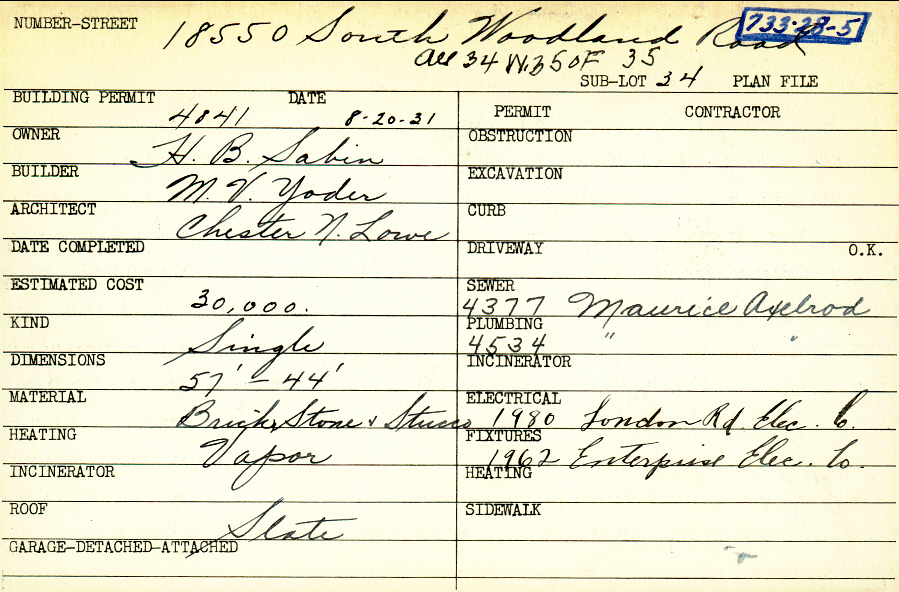 NUMBER-STREET 18550 South Woodland Road 733-28-5
All 34 W.35 OF 35
SUB-LOT 34 PLAN FILE
BUILDING PERMIT 4841 DATE 8-20-31
OWNER H. B. Sabin
BUILDER M. V. Yoder
ARCHITECT Chester N. Lowe
DATE COMPLETED
ESTIMATED COST 30,000.
KIND Single
DIMENSIONS 57' - 44'
MATERIAL Brick, Stone & Stucco
HEATING Vapor
INCINERATOR
ROOF Slate
GARAGE-DETACHED-ATTACHED
PERMIT CONTRACTOR
OBSTRUCTION
EXCAVATION
CURB
DRIVEWAY O.K.
SEWER
4377 Maurice Axelrod
PLUMBING
4534 " "
INCINERATOR
ELECTRICAL
1980 London Rd. Elec. Co.
FIXTURES
1962 Enterprise Elec. Co.
HEATING
SIDEWALK